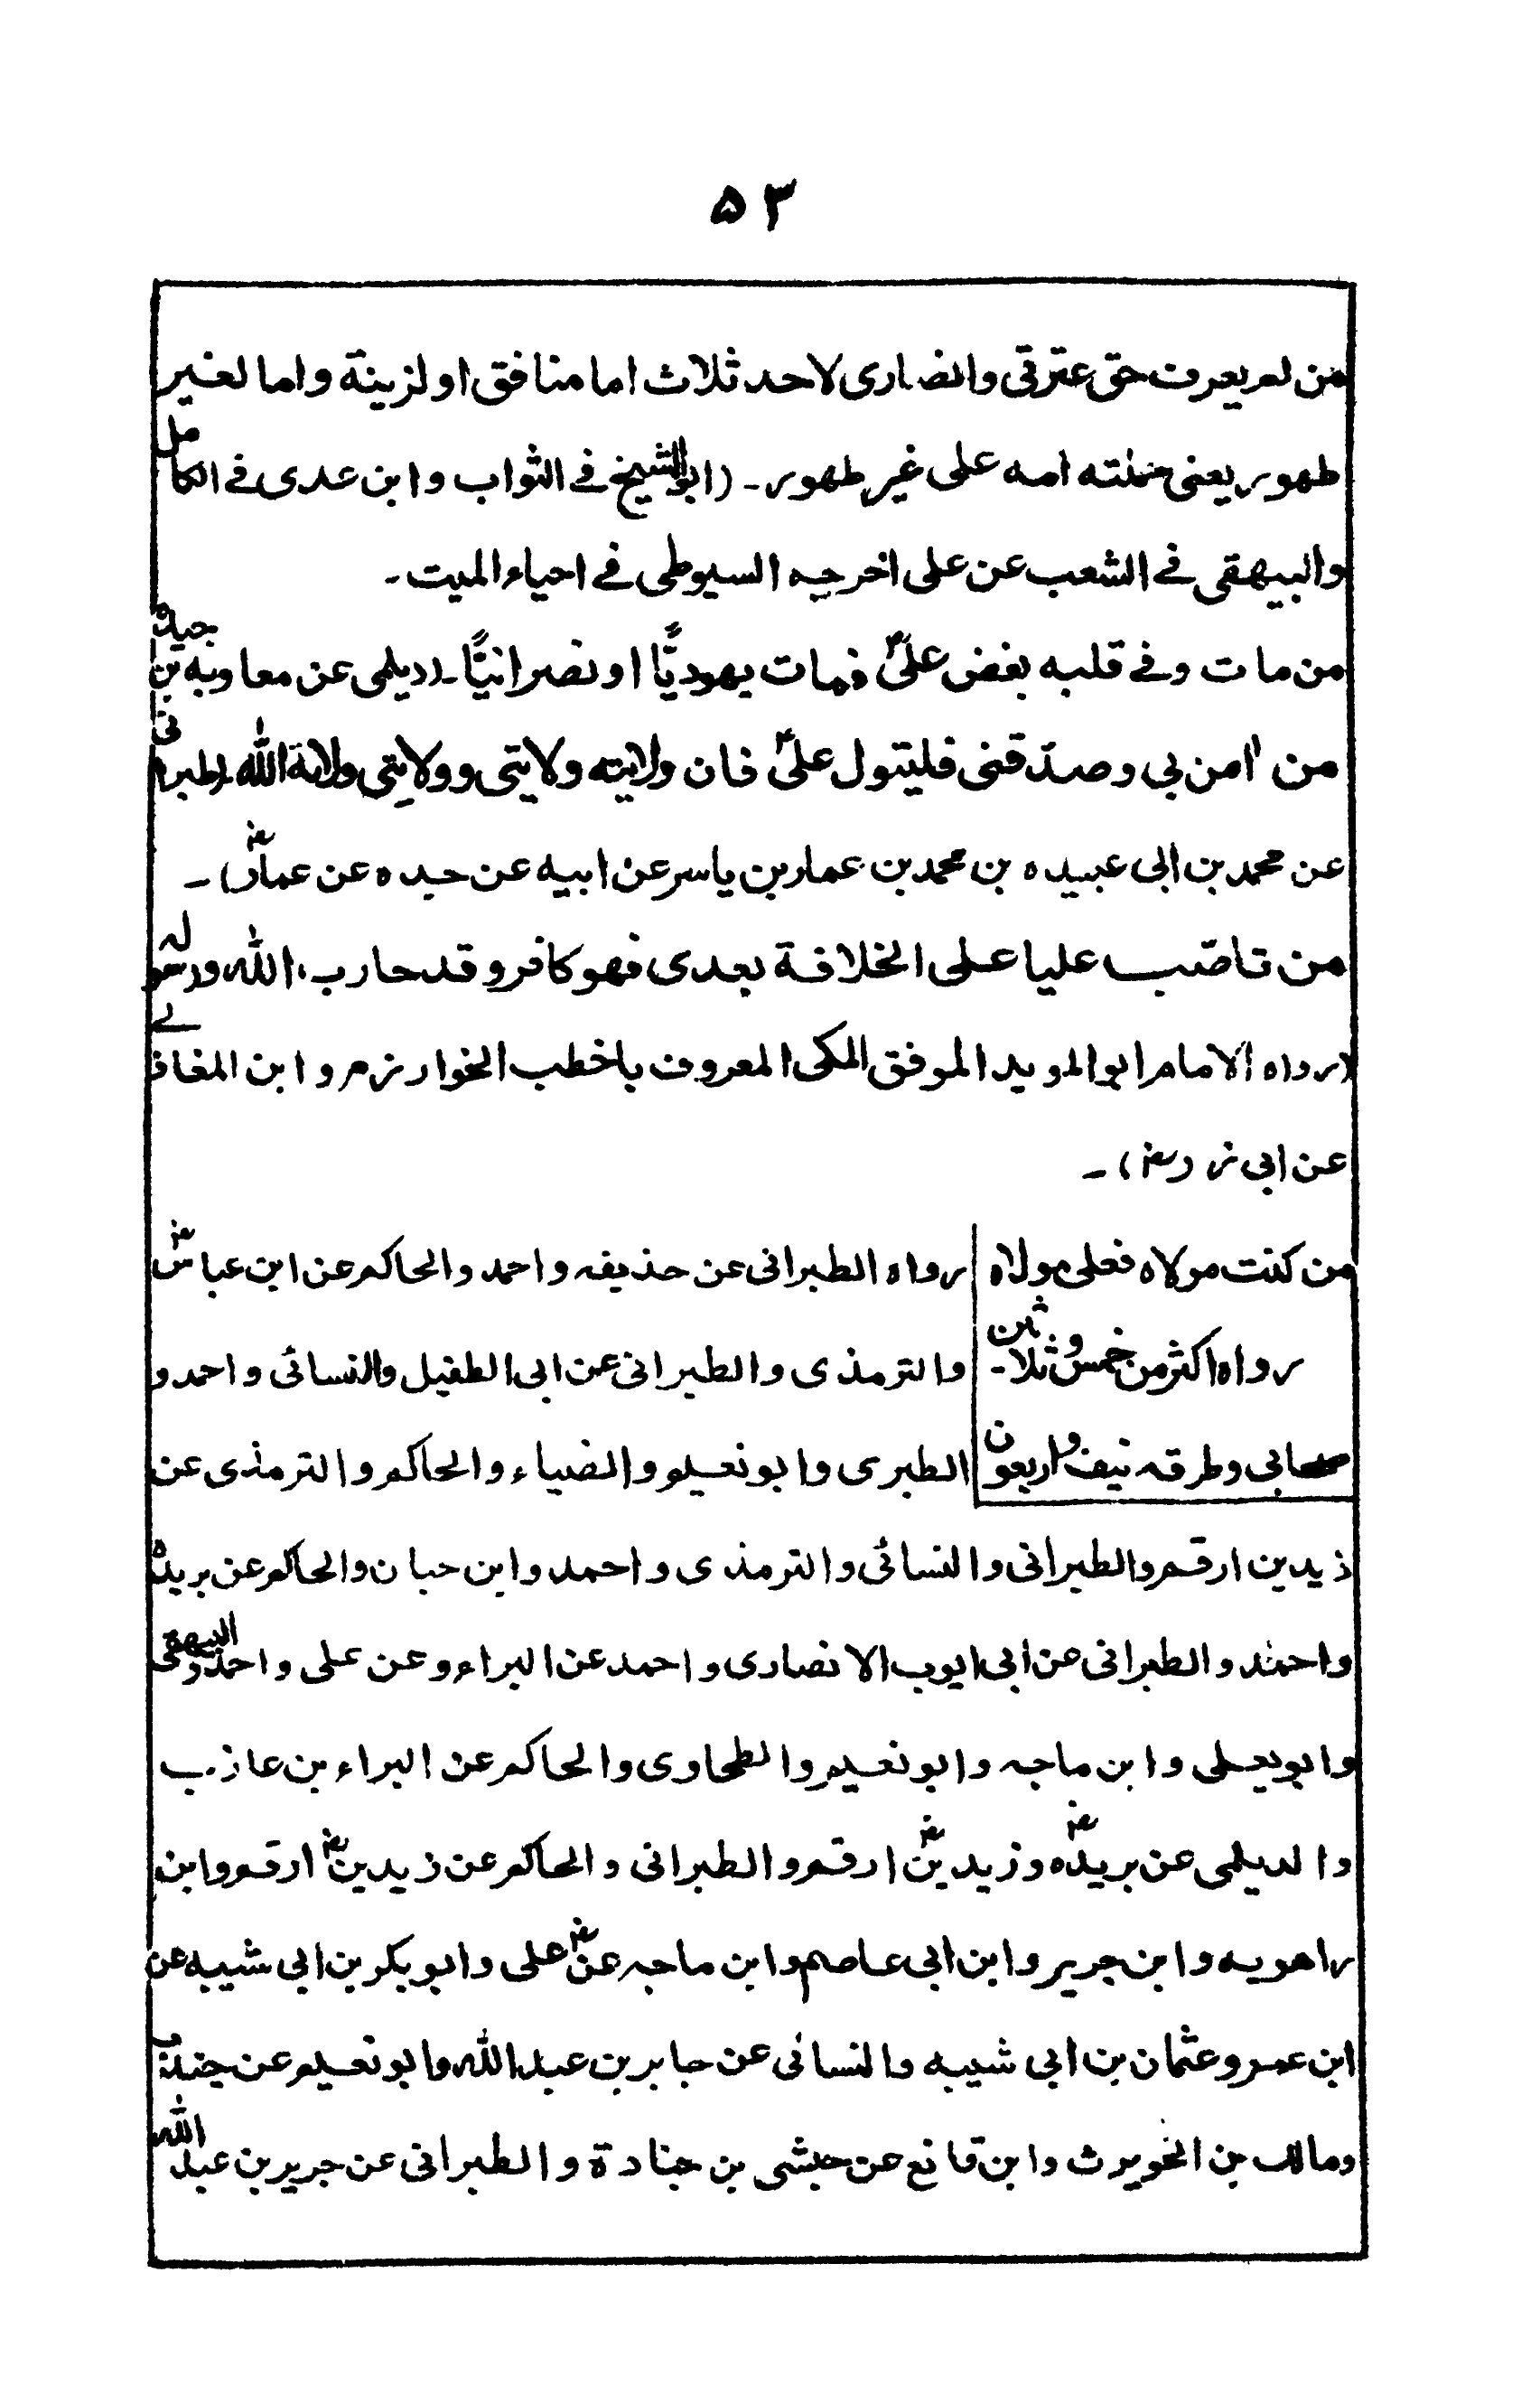 ۵۳
من لم يعرف حق عترتى وانصارى لاحد ثلاث اما منافق او لزينة واما لغير
طهور يعنى حملته امه على غير طهور ـ (ابو الشيخ فے الثواب وابن عدى فے الكامل
والبيهقى فے الشعب عن على اخرجه السيوطى فے احياء الميت ـ
من مات وفے قلبه بغض علىؑ فمات يهوديًّا او نصرانيًّا ـ (ديلمى عن معاويه بن حيده
من اٰمن بى وصدّقنى فليتول علىؑ فان ولايته ولايتى وولايتى ولاية اللّٰه (طبرانى
عن محمد بن ابى عبيده بن محمد بن عمار بن ياسر عن ابيه عن جده عن عمارؓ) ـ
من ناصب عليا على الخلافة بعدى فهو كافر وقد حارب اللّٰه ورسوله
(رواه الامام ابو المويد الموفق المكى المعروف باخطب الخوارزم وابن المغازلے
عن ابى ذرؓ) ـ
من كنت مولاه فعلى مولاه رواه الطبرانى عن حذيفه واحمد والحاكم عن ابن عباسؓ
رواه اكثر من خمس وثلاثين والترمذى والطبرانى عن ابى الطفيل والنسائى واحمد و
صحابى وطرقه نيف و اربعون الطبرى وابو نعيم والضياء والحاكم والترمذى عن
زيد بن ارقم والطبرانى والنسائى والترمذى واحمد وابن حبان والحاكم عن بريده
واحمد والطبرانى عن ابى ايوب الانصارى واحمد عن البراء وعن على واحمد والبيهقى
وابو يعلى وابن ماجه وابو نعيم والطحاوى والحاكم عن البراء بن عازب
والديلمى عن بريدهؓ وزيد بنؓ ارقم والطبرانى والحاكم عن زيد بنؓ ارقم وابن
راهويه وابن جرير وابن ابى عاصم وابن ماجه عنؓ على وابو بكر بن ابى شيبه عن
ابن عمر وعثمان بن ابى شيبه والنسائى عن جابر بن عبد اللّٰه وابو نعيم عن جندب
ومالك بن الحويرث وابن قانع عن حبشى بن جنادة والطبرانى عن جرير بن عبد اللّٰه